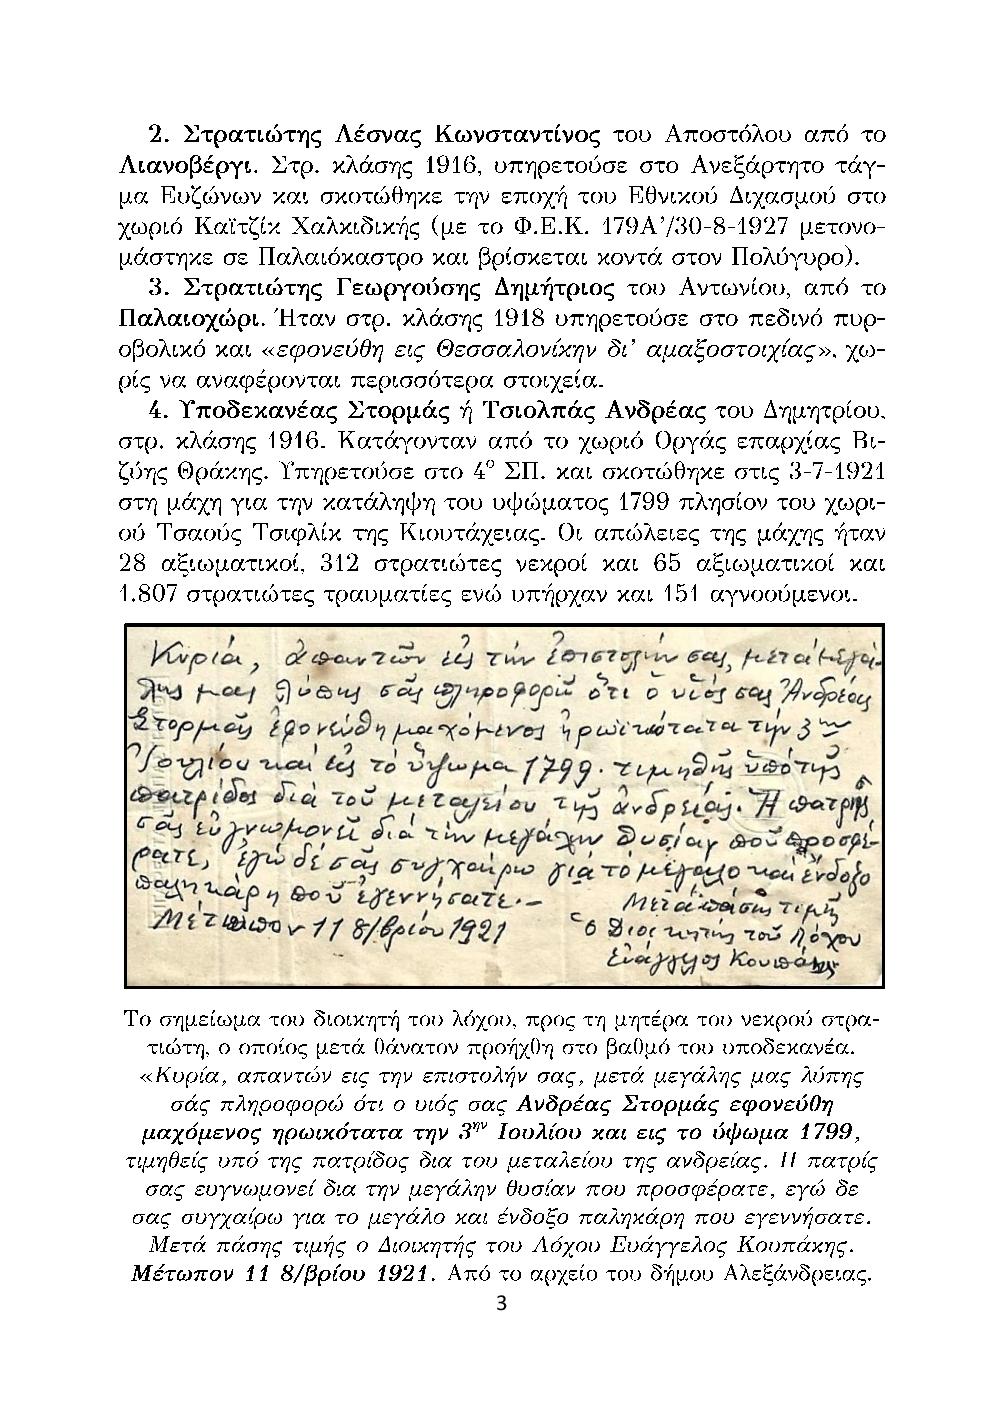 2. Στρατιώτης Λέσνας Κωνσταντίνος του Αποστόλου από το
Λιανοβέργι. Στρ. κλάσης 1916, υπηρετούσε στο Ανεξάρτητο τάγ-
μα Ευζώνων και σκοτώθηκε την εποχή του Εθνικού Διχασμού στο
χωριό Καϊτζίκ Χαλκιδικής (με το Φ.Ε.Κ. 179Α'/30-8-1927 μετονο-
μάστηκε σε Παλαιόκαστρο και βρίσκεται κοντά στον Πολύγυρο).
3. Στρατιώτης Γεωργούσης Δημήτριος του Αντωνίου, από το
Παλαιοχώρι. Ήταν στρ. κλάσης 1918 υπηρετούσε στο πεδινό πυρ-
οβολικό και «εφονεύθη εις Θεσσαλονίκην δι' αμαξοστοιχίας», χω-
ρίς να αναφέρονται περισσότερα στοιχεία.
4. Υποδεκανέας Στορμάς ή Τσιολπάς Ανδρέας του Δημητρίου,
στρ. κλάσης 1916. Κατάγονταν από το χωριό Οργάς επαρχίας Βι-
ζύης Θράκης. Υπηρετούσε στο 4ο ΣΠ. και σκοτώθηκε στις 3-7-1921
στη μάχη για την κατάληψη του υψώματος 1799 πλησίον του χωρι-
ού Τσαούς Τσιφλίκ της Κιουτάχειας. Οι απώλειες της μάχης ήταν
28 αξιωματικοί, 312 στρατιώτες νεκροί και 65 αξιωματικοί και
1.807 στρατιώτες τραυματίες ενώ υπήρχαν και 151 αγνοούμενοι.
Κυρία, ἀπαντῶν εἰς τὴν ἐπιστολήν σας, μετὰ μεγά-
λης μας λύπης σᾶς πληροφορῶ ὅτι ὁ υἱός σας Ἀνδρέας
Στορμᾶς ἐφονεύθη μαχόμενος ἡρωϊκότατα τὴν 3ην
Ἰουλίου καὶ εἰς τὸ ὕψωμα 1799. τιμηθεὶς ὑπὸ τῆς
πατρίδος διὰ τοῦ μεταλείου τῆς ἀνδρείας. Ἡ πατρίς
σας εὐγνωμονεῖ διὰ τὴν μεγάλην θυσίαν ποῦ προσφέ-
ρατε, ἐγὼ δὲ σᾶς συγχαίρω γιὰ τὸ μεγάλο καὶ ἔνδοξο
παληκάρη ποῦ ἐγεννήσατε.-
Μετὰ πάσης τιμῆς
Μέτωπον 11 8/βρίου 1921
ὁ Διοικητής τοῦ Λόχου
Εὐάγγελος Κουπάκης
Το σημείωμα του διοικητή του λόχου, προς τη μητέρα του νεκρού στρα-
τιώτη, ο οποίος μετά θάνατον προήχθη στο βαθμό του υποδεκανέα.
«Κυρία, απαντών εις την επιστολήν σας, μετά μεγάλης μας λύπης
σάς πληροφορώ ότι ο υιός σας Ανδρέας Στορμάς εφονεύθη
μαχόμενος ηρωικότατα την 3ην Ιουλίου και εις το ύψωμα 1799,
τιμηθείς υπό της πατρίδος δια του μεταλείου της ανδρείας. Η πατρίς
σας ευγνωμονεί δια την μεγάλην θυσίαν που προσφέρατε, εγώ δε
σας συγχαίρω για το μεγάλο και ένδοξο παληκάρη που εγεννήσατε.
Μετά πάσης τιμής ο Διοικητής του Λόχου Ευάγγελος Κουπάκης.
Μέτωπον 11 8/βρίου 1921. Από το αρχείο του δήμου Αλεξάνδρειας.
3